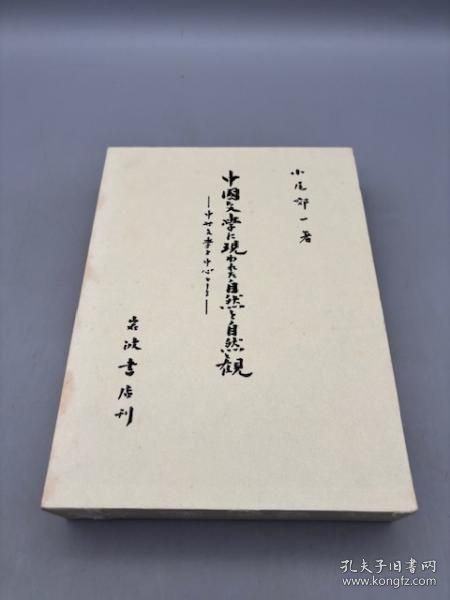 小尾郊一著
中國文學に現われた自然と自然觀
―中世文學を中心として―
岩波書店刊
孔夫子旧书网
www.kongfz.com